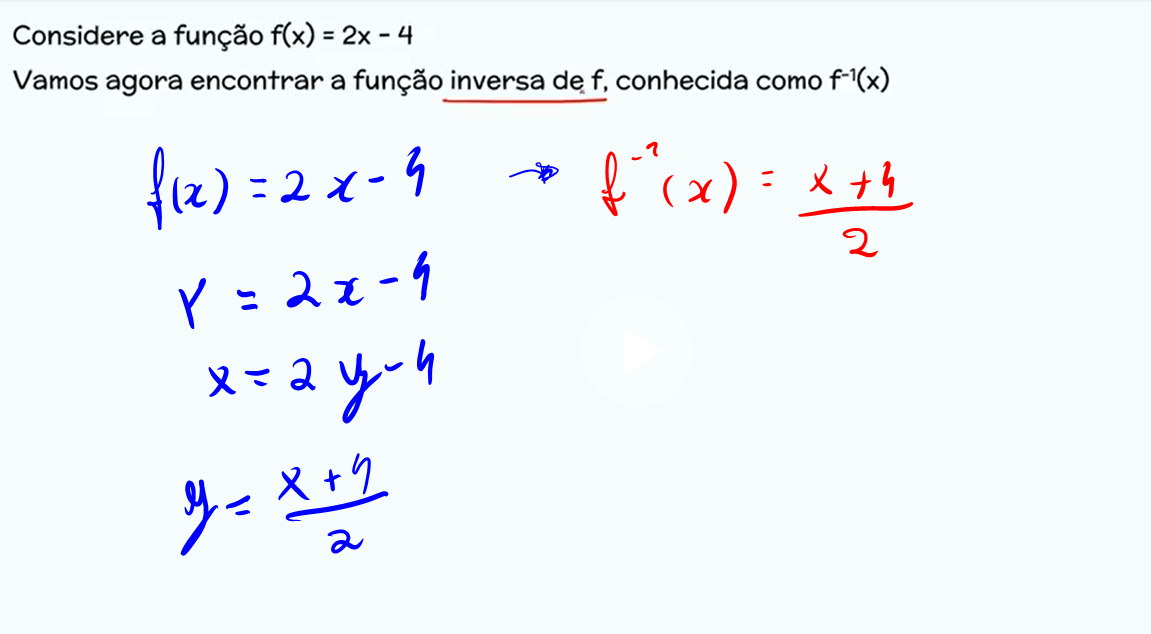 Considere a função f(x) = 2x - 4
Vamos agora encontrar a função inversa de f, conhecida como f⁻¹(x)
f(x) = 2x - 4 → f⁻¹(x) = (x + 4)/2
Y = 2x - 4
x = 2y - 4
y = (x + 4)/2